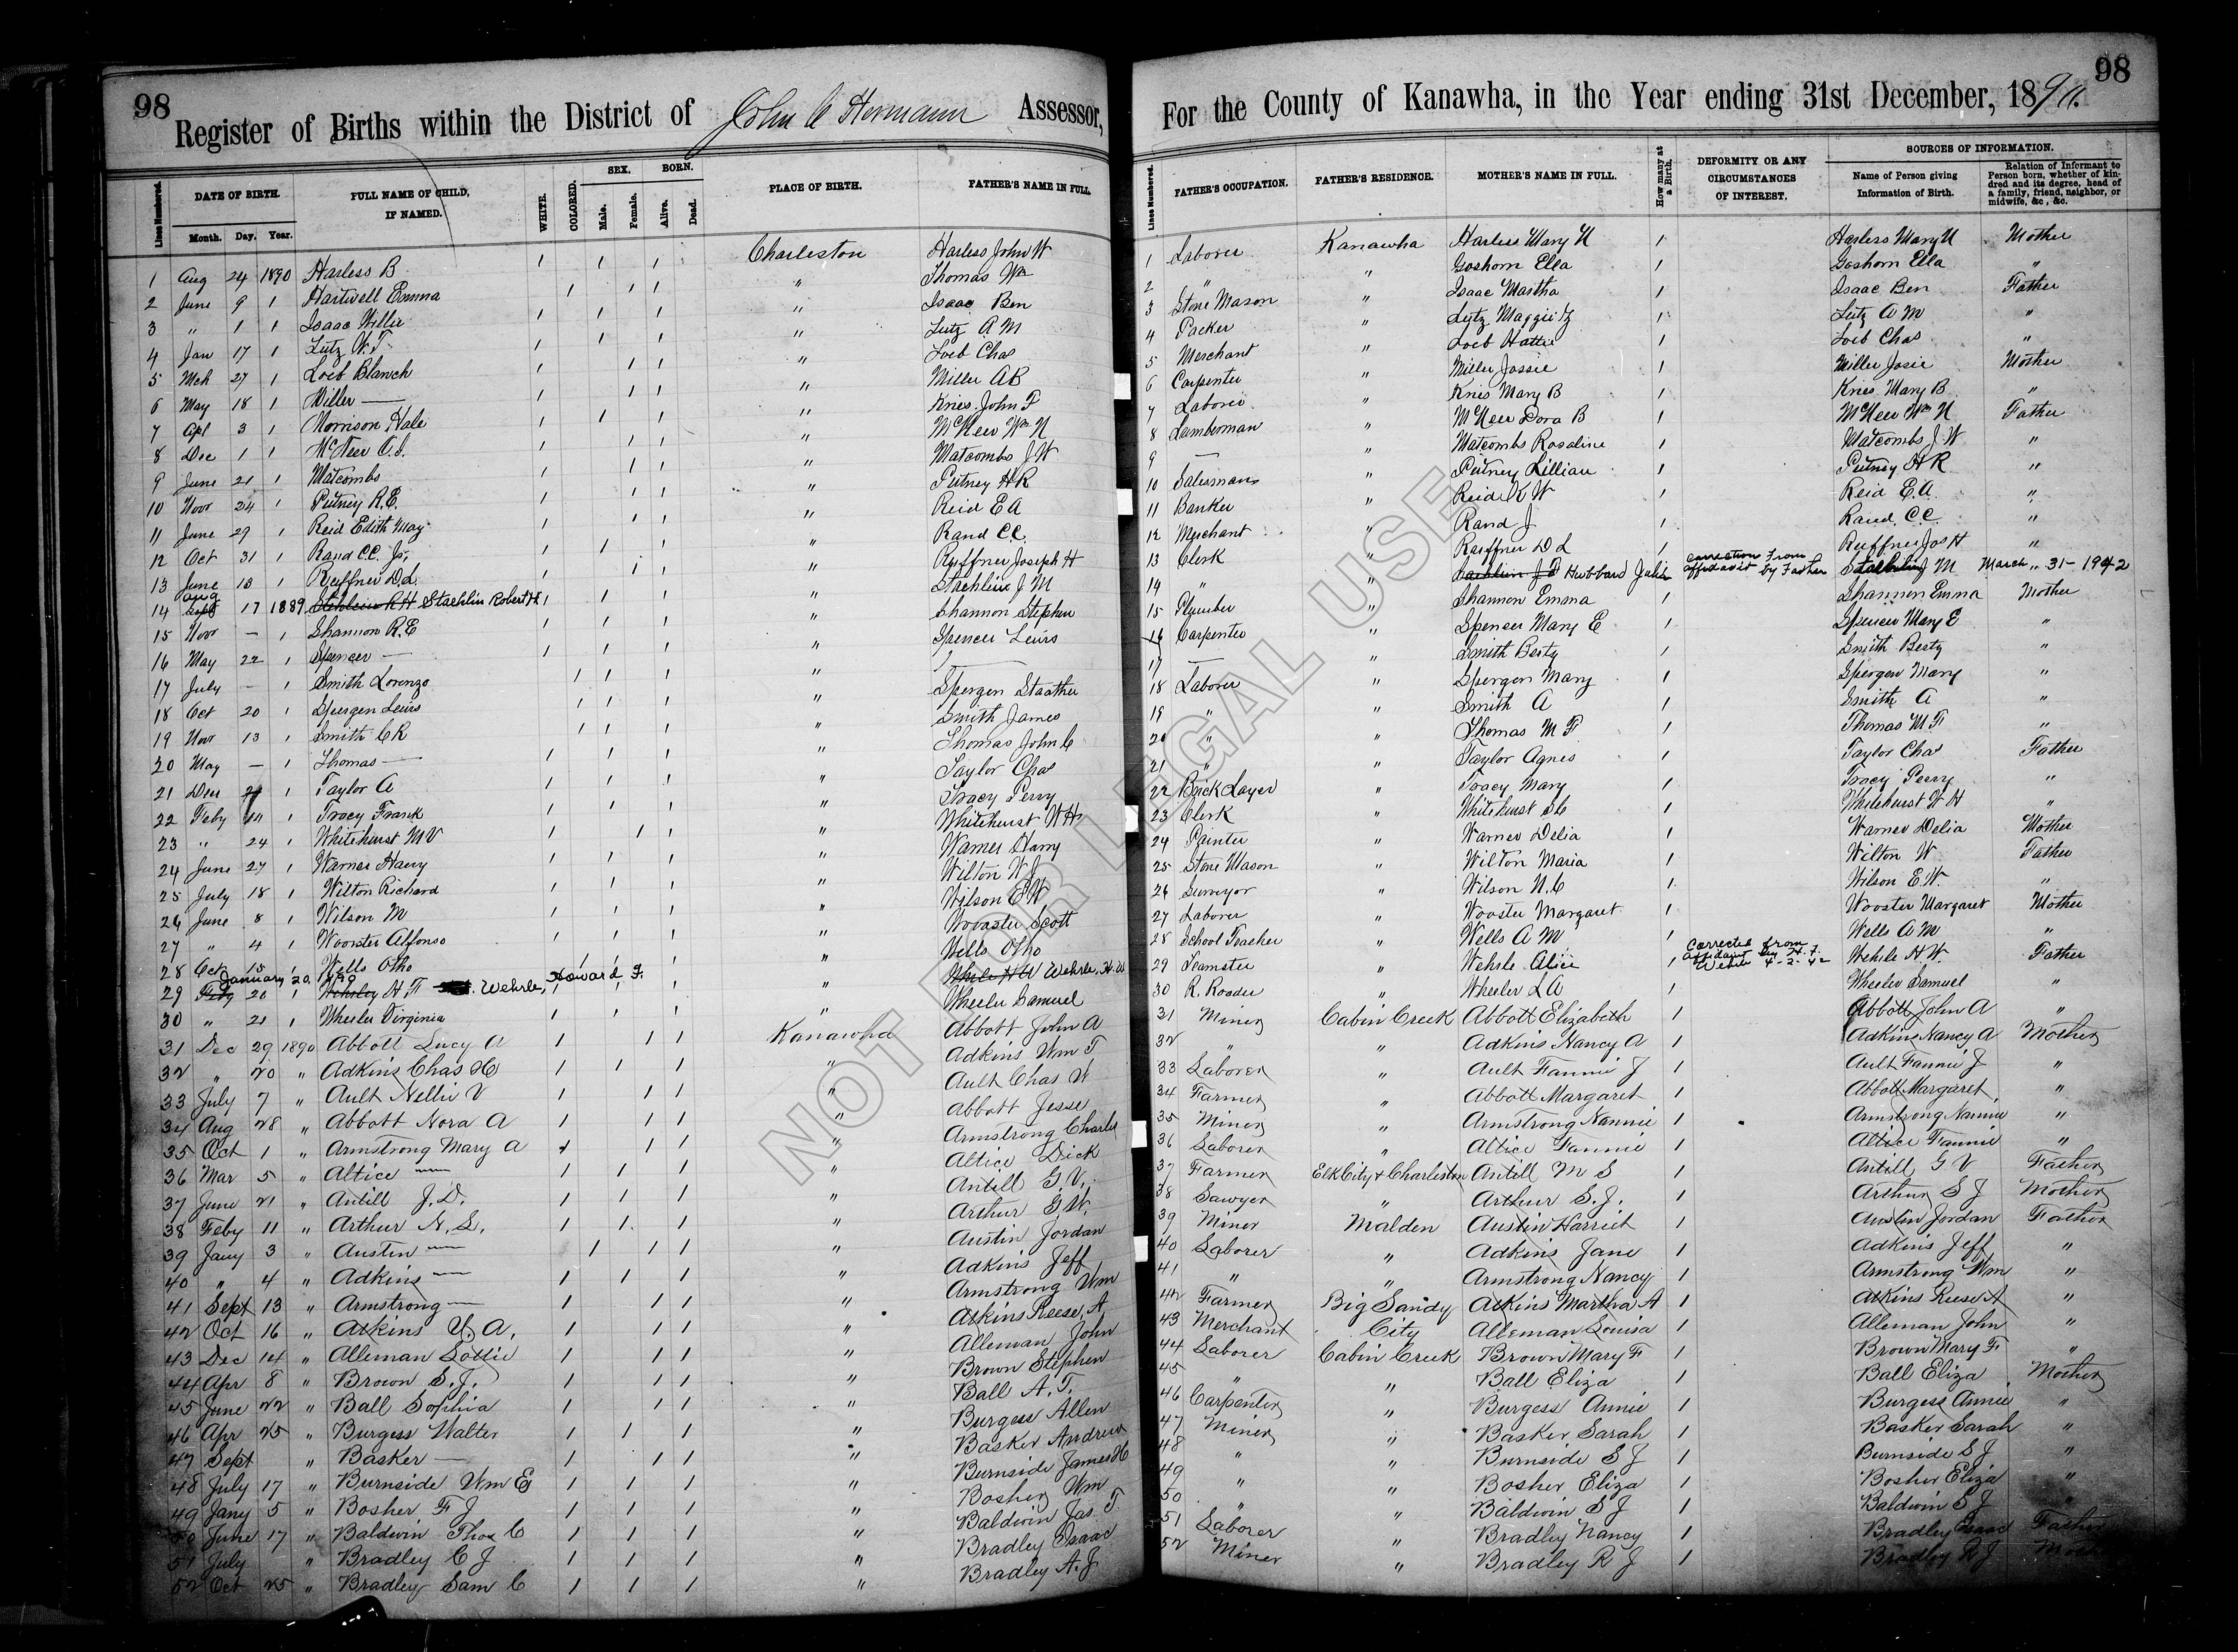 98
Register of Births within the District of John C Hermann Assessor,
LinesNumbered. DATE OF BIRTH. FULL NAME OF CHILD, IF NAMED. WHITE. COLORED. SEX. BORN. PLACE OF BIRTH. FATHER'S NAME IN FULL.
Month. Day. Year. Male. Female. Alive. Dead.
1 Aug 24 1890 Harless B 1 1 1 Charleston Harless John W
2 June 9 1 Hartwell Emma 1 1 1 " Thomas Wm
3 " 1 1 Isaac Willie 1 1 1 " Isaac Ben
4 Jan 17 1 Lutz W.T. 1 1 1 " Lutz A M
5 Mch 27 1 Loeb Blanch 1 1 1 " Loeb Chas
6 May 18 1 Miller — 1 1 1 " Miller AB
7 Apl 3 1 Morrison Hale 1 1 1 " Knies John F
8 Dec 1 1 McNeer O.S. 1 1 1 " McNeer Wm N
9 June 21 1 Matcombs 1 1 1 " Matcombs J.W
10 Novr 24 1 Putney R.E. 1 1 1 " Putney H R
11 June 29 1 Reid Edith May 1 1 1 " Reid E A
12 Oct 31 1 Rand C.C. Jr. 1 1 1 " Rand C.C.
13 June 13 1 Ruffner D.L. 1 1 1 " Ruffner Joseph H
14 Aug Sept 17 1889 Stehlein R H Staehlin Robert H. 1 1 1 " Staehlin J M
15 Novr — 1 Shannon R.E 1 1 1 " Shannon Stephen
16 May 22 1 Spencer — 1 1 1 " Spencer Lewis
17 July — 1 Smith Lorenzo 1 1 1 "
18 Oct 20 1 Spurgen Lewis 1 1 1 " Spergen Staather
19 Novr 13 1 Smith C R 1 1 1 " Smith James
20 May — 1 Thomas — 1 1 1 " Thomas John C
21 Dec 1 Taylor A 1 1 1 " Taylor Chas
22 Feby 1 Tracy Frank 1 1 1 " Tracy Perry
23 " 24 1 Whitehurst M V 1 1 1 " Whitehurst W H
24 June 27 1 Warner Harry 1 1 1 " Warner Harry
25 July 18 1 Wilton Richard 1 1 1 " Wilton W J
26 June 8 1 Wilson M 1 1 1 " Wilson E W
27 " 4 1 Wooster Alfonso 1 1 1 " Wooster Scott
28 Oct 15 1 Wells Otho 1 1 1 " Wells Otho
January 20,
29 Feby 20 1 Wehrley H. F Wehrle, Howard F. 1 1 1 " Wehrle, H. W
30 " 21 1 Wheeler Virginia 1 1 1 " Wheeler Samuel
31 Dec 29 1890 Abbott Lucy A 1 1 1 Kanawha Abbott John A
32 " 20 " Adkins Chas H 1 1 1 " Adkins Wm T
33 July 7 " Ault Nellie V 1 1 1 " Ault Chas W
34 Aug 28 " Abbott Nora A 1 1 1 " Abbott Jesse
35 Oct 1 " Armstrong Mary A 1 1 1 " Armstrong Charles
36 Mar 5 " Altice — 1 1 1 " Altice Dick
37 June 21 " Antill J.D. 1 1 1 " Antill G.V.
38 Feby 11 " Arthur N.L. 1 1 1 " Arthur G.W.
39 Jany 3 " Austin — 1 1 1 " Austin Jordan
40 " 4 " Adkins — 1 1 1 " Adkins Jeff
41 Sept 13 " Armstrong — 1 1 1 " Armstrong Wm
42 Oct 16 " Atkins U. A. 1 1 1 " Atkins Reese A
43 Dec 14 " Alleman Lottie 1 1 1 " Alleman John
44 Apr 8 " Brown S.J. 1 1 1 " Brown Stephen
45 June 22 " Ball Sophia 1 1 1 " Ball A.T.
46 Apr 25 " Burgess Walter 1 1 1 " Burgess Allen
47 Sept " Basker — 1 1 1 " Basker Andrew
48 July 17 " Burnside Wm E 1 1 1 " Burnside James H
49 Jany 5 " Bosher F J 1 1 1 " Bosher Wm
50 June 17 " Baldwin Thos C 1 1 1 " Baldwin Jas. T.
51 July " Bradley C J 1 1 1 " Bradley Isaac
52 Oct 25 " Bradley Sam C 1 1 1 " Bradley A.J
98
For the County of Kanawha, in the Year ending 31st December, 1890.
Lines Numbered. FATHER'S OCCUPATION. FATHER'S RESIDENCE. MOTHER'S NAME IN FULL. How many at a Birth. DEFORMITY OR ANY CIRCUMSTANCES OF INTEREST. SOURCES OF INFORMATION.
Name of Person giving Information of Birth. Relation of Informant to Person born, whether of kindred and its degree, head of a family, friend, neighbor, or midwife, &c., &c.
1 Laborer Kanawha Harless Mary N 1 Harless Mary N Mother
2 " " Goshorn Ella 1 Goshorn Ella "
3 Stone Mason " Isaac Martha 1 Isaac Ben Father
4 Packer " Lutz Maggie 1 Lutz A M "
5 Merchant " Loeb Hattie 1 Loeb Chas "
6 Carpenter " Miller Jossie 1 Miller Josie Mother
7 Laborer " Knies Mary B 1 Knies Mary B "
8 Lumberman " McNeer Dora B 1 McNeer Wm N Father
9 — " Matcombs Rosaline 1 Matcombs J.W "
10 Salesman " Putney Lillian 1 Putney H R "
11 Banker " Reid K W 1 Reid E.A. "
12 Merchant " Rand J 1 Rand C.C. "
13 Clerk " Ruffner D L 1 Ruffner Jos H "
14 " " Hubbard Julia correction From affidavit by Father Staehlin J M March 31-1942
15 Plumber " Shannon Emma 1 Shannon Emma Mother
16 Carpenter " Spencer Mary E 1 Spencer Mary E "
17 — " Smith Berty 1 Smith Berty "
18 Laborer " Spergen Mary 1 Spergen Mary "
19 " " Smith A 1 Smith A "
20 " " Thomas M F 1 Thomas M F "
21 " " Taylor Agnes 1 Taylor Chas Father
22 Brick Layer " Tracy Mary 1 Tracy Perry "
23 Clerk " Whitehurst S C 1 Whitehurst W H "
24 Painter " Warner Delia 1 Warner Delia Mother
25 Stone Mason " Wilton Maria 1 Wilton W Father
26 Surveyor " Wilson N.C 1 Wilson E.W. "
27 Laborer " Wooster Margaret 1 Wooster Margaret Mother
28 School Teacher " Wells A M 1 Wells A M "
29 Teamster " Wehrle Alice 1 Corrected from affidavit by H.F. Wehrle 4-2-42 Wehrle H.W. Father
30 R. Roader " Wheeler L A 1 Wheeler Samuel "
31 Miner Cabin Creek Abbott Elizabeth 1 Abbott John A "
32 " " Adkins Nancy A 1 Adkins Nancy A Mother
33 Laborer " Ault Fannie J 1 Ault Fannie J "
34 Farmer " Abbott Margaret 1 Abbott Margaret "
35 Miner " Armstrong Nannie 1 Armstrong Nannie "
36 Laborer " Altice Fannie 1 Altice Fannie "
37 Farmer Elk City & Charleston Antill M S 1 Antill G V Father
38 Sawyer " Arthur S.J. 1 Arthur S J Mother
39 Miner Malden Austin Harriet 1 Austin Jordan Father
40 Laborer " Adkins Jane 1 Adkins Jeff "
41 " " Armstrong Nancy 1 Armstrong Wm "
42 Farmer Big Sandy Atkins Martha A 1 Atkins Reese A "
43 Merchant City Alleman Louisa 1 Alleman John "
44 Laborer Cabin Creek Brown Mary F 1 Brown Mary F "
45 " " Ball Eliza 1 Ball Eliza Mother
46 Carpenter " Burgess Annie 1 Burgess Annie "
47 Miner " Basker Sarah 1 Basker Sarah "
48 " " Burnside S J 1 Burnside S J "
49 " " Bosher Eliza 1 Bosher Eliza "
50 " " Baldwin S J 1 Baldwin S J "
51 Laborer " Bradley Nancy 1 Bradley Isaac Father
52 Miner " Bradley R J 1 Bradley R J Mother
NOT FOR LEGAL USE